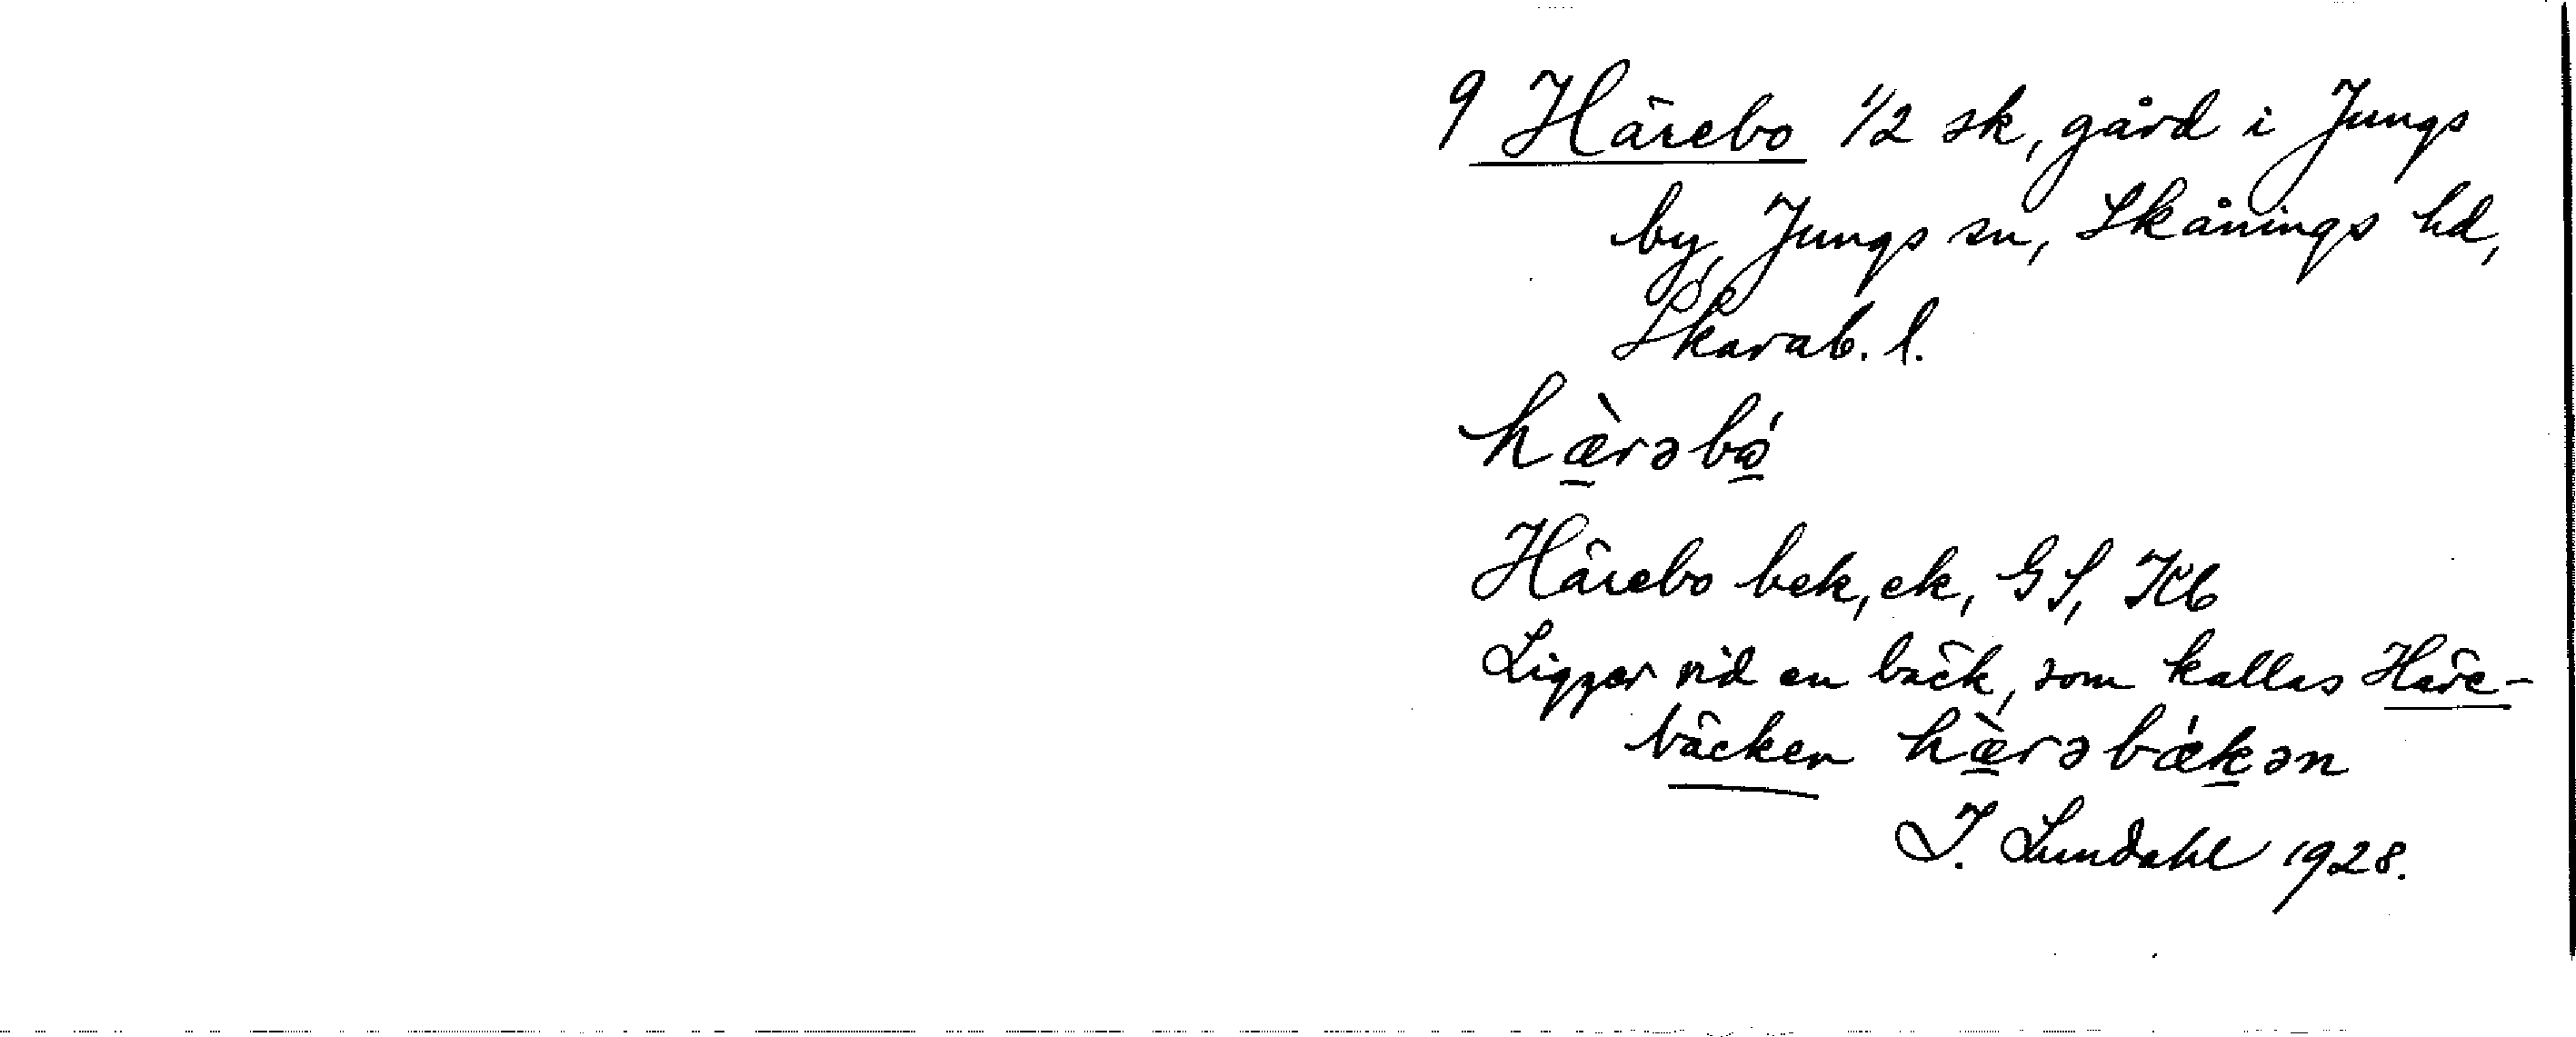 9 Härebo 1/2 sk, gård i Jungs
by, Jungs sn, Skånings hd,
Skarab. l.
hæ̀rəbó
Härebo bek, ek, GS, Kb
Ligger vid en bäck, som kallas Häre-
bäcken hæ̀rəbǽkən
I. Lundahl 1928.